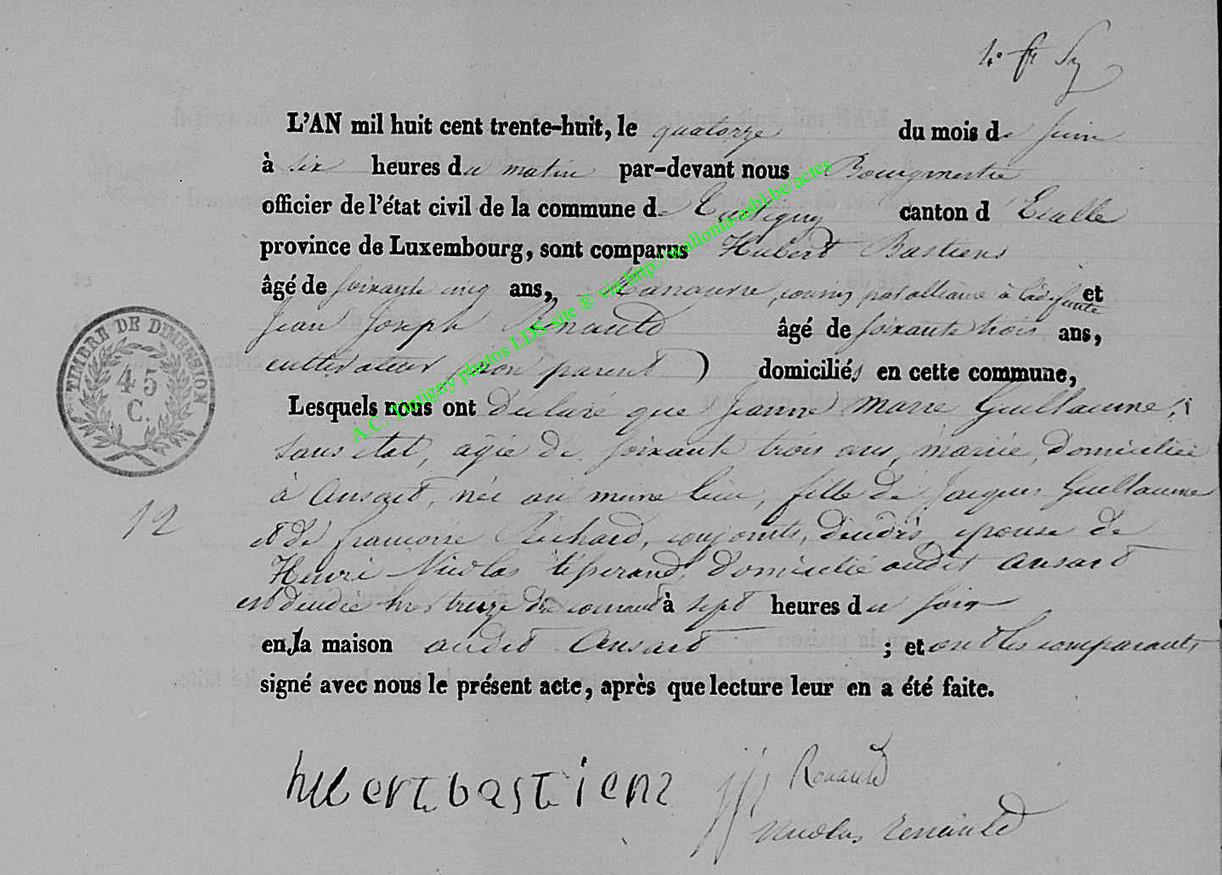 L'AN mil huit cent trente-huit, le quatorze du mois de Juin
à six heures du matin par-devant nous Bourgmestre
officier de l'état civil de la commune de Tintigny canton d' Etalle
province de Luxembourg, sont comparus Hubert Bastiens
âgé de soixante cinq ans, Manœuvre, cousin par alliance à la défunte et
Jean Joseph Renauld âgé de soixante trois ans,
cultivateur son parent domiciliés en cette commune,
Lesquels nous ont déclaré que Jeanne Marie Guillaume,
sans état, agée de soixante trois ans, mariée, domiciliée
à ansart, née au meme lieu, fille de Jacques Guillaume
et de francoise Richard, conjoints, décédés, épouse de
Henri Nicolas Lespérand, domicilié audit ansart
est décédée hier treize du courant à sept heures du soir
en sa maison audit Ansart ; et ont les comparants
signé avec nous le présent acte, après que lecture leur en a été faite.
TIMBRE DE DIMENSION
45
C.
12
hubert bastiens
jj Renauld
Nicolas Renauld
A.C. Tintigny photos LDS site ® via http://wallonia-asbl.be/actes